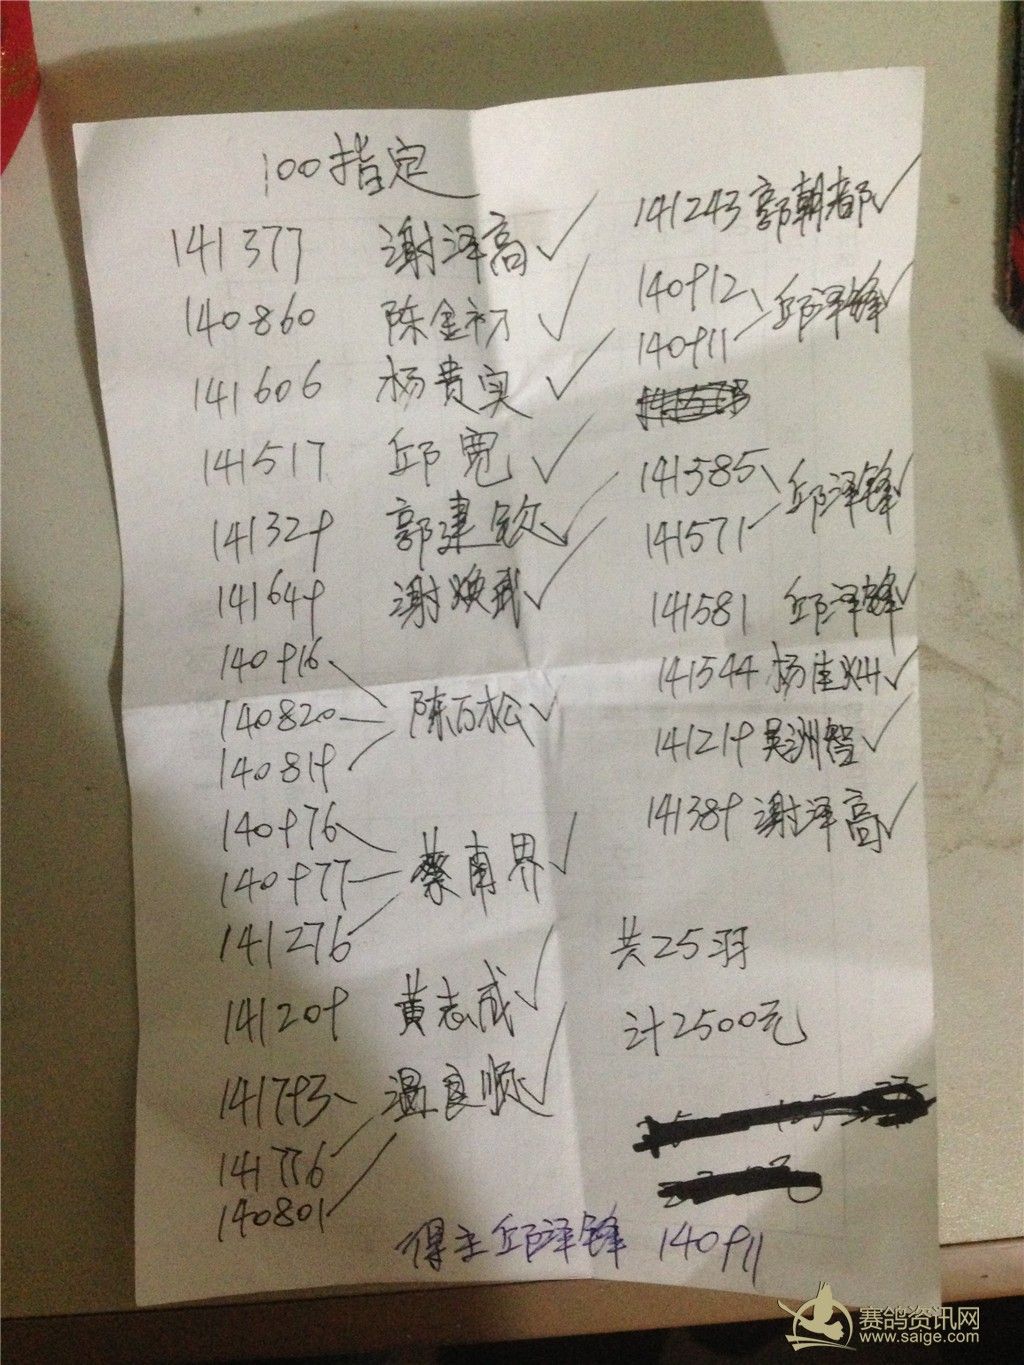 100指定
141377 谢泽高✓
140860 陈金初✓
141606 杨贵实✓
141517 邱宽✓
141329 郭建钦✓
141649 谢焕武✓
140916
140820 陈百松✓
140819
140976
140977 蔡南界✓
141276
141209 黄志成✓
141793 温良顺✓
141776
140801
141243 郭朝都✓
140912 邱泽锋✓
140911
141585 邱泽锋✓
141571
141581 邱泽锋✓
141544 杨佳✓
141219 吴洲智✓
141389 谢泽高✓
共25羽
计2500元
得主邱泽锋 140911
赛鸽资讯网
www.saige.com